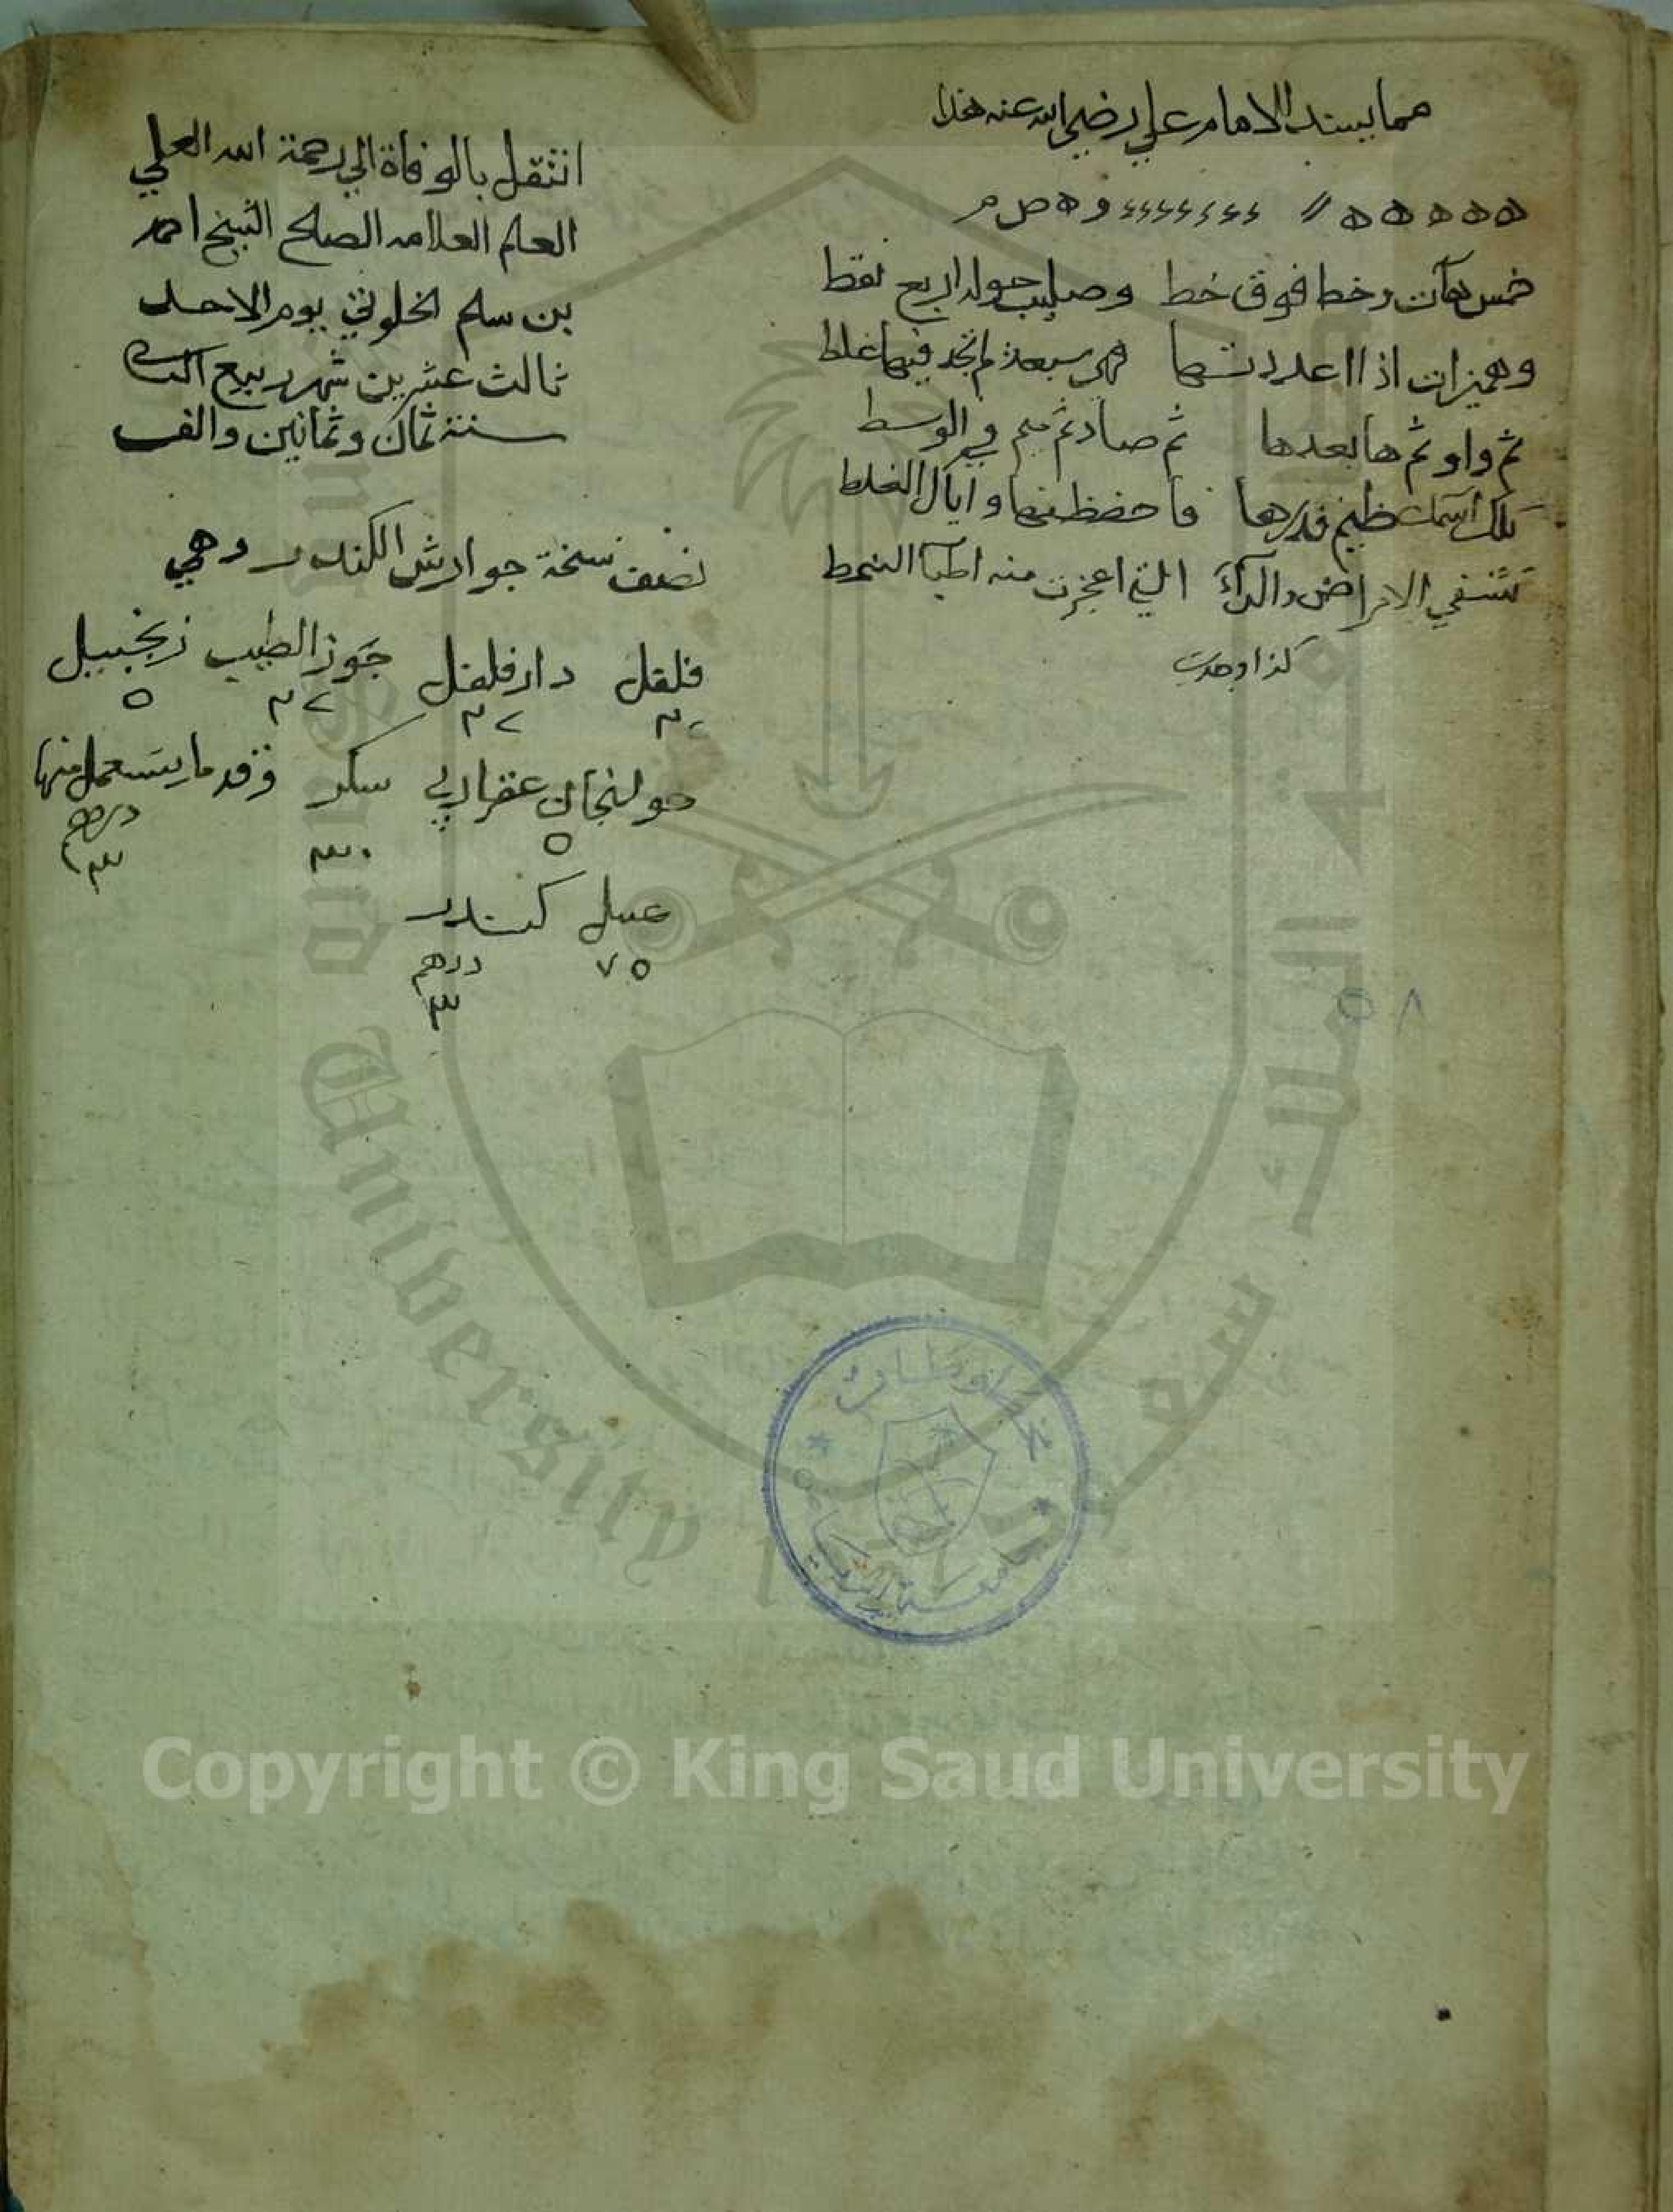 مما يسند الامام علي رضي الله عنه هذا
ه ه ه ه ه // ء ء ء ء ء ء ء ء و ه ص م
خمس هآت وخط فوق خط وصليب حوله اربع نقط
وهميزات اذا اعددتها فهي سبعة لم تجد فيها غلط
ثم واو ثم ها بعدها ثم صاد ثم ميم في الوسط
تلك اسمآء ظيم قدرها فاحفظنها واياك الغلط
تشفي الامراض والدآء التي اعجزت منه اطبآ النمط
كذا وجدت
انتقل بالوفاة الي رحمة الله العلي
العلم العلامه الصلح الشيخ احمد
بن سلم الخلوتي يوم الاحد
ثالث عشرين شهر ربيع
سنة ثمان وثمانين والف
نصف نسخة جوارش الكندر وهي
فلفل دارفلفل جوز الطيب زنجبيل
٢ ٢٢ ٢٢ ٥
خولنجان عقرابي سكر وقدر ما يستعمل منها
٥ ٣٠ درهم ٣
عسل كندر
٧٥ درهم
٣
٥٨
جامعة الرياض
Copyright © King Saud University